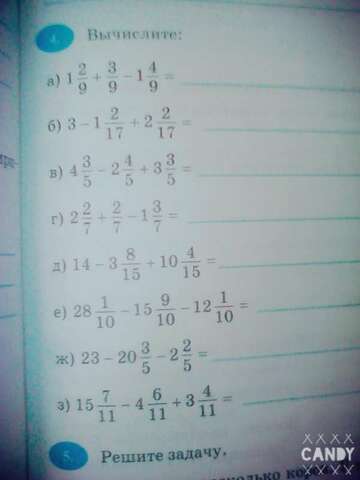 4. Вычислите:
а) 1 2/9 + 3/9 − 1 4/9 =
б) 3 − 1 2/17 + 2 2/17 =
в) 4 3/5 − 2 4/5 + 3 3/5 =
г) 2 2/7 + 2/7 − 1 3/7 =
д) 14 − 3 8/15 + 10 4/15 =
е) 28 1/10 − 15 9/10 − 12 1/10 =
ж) 23 − 20 3/5 − 2 2/5 =
з) 15 7/11 − 4 6/11 + 3 4/11 =
5. Решите задачу.
XXXX
CANDY
XXXX